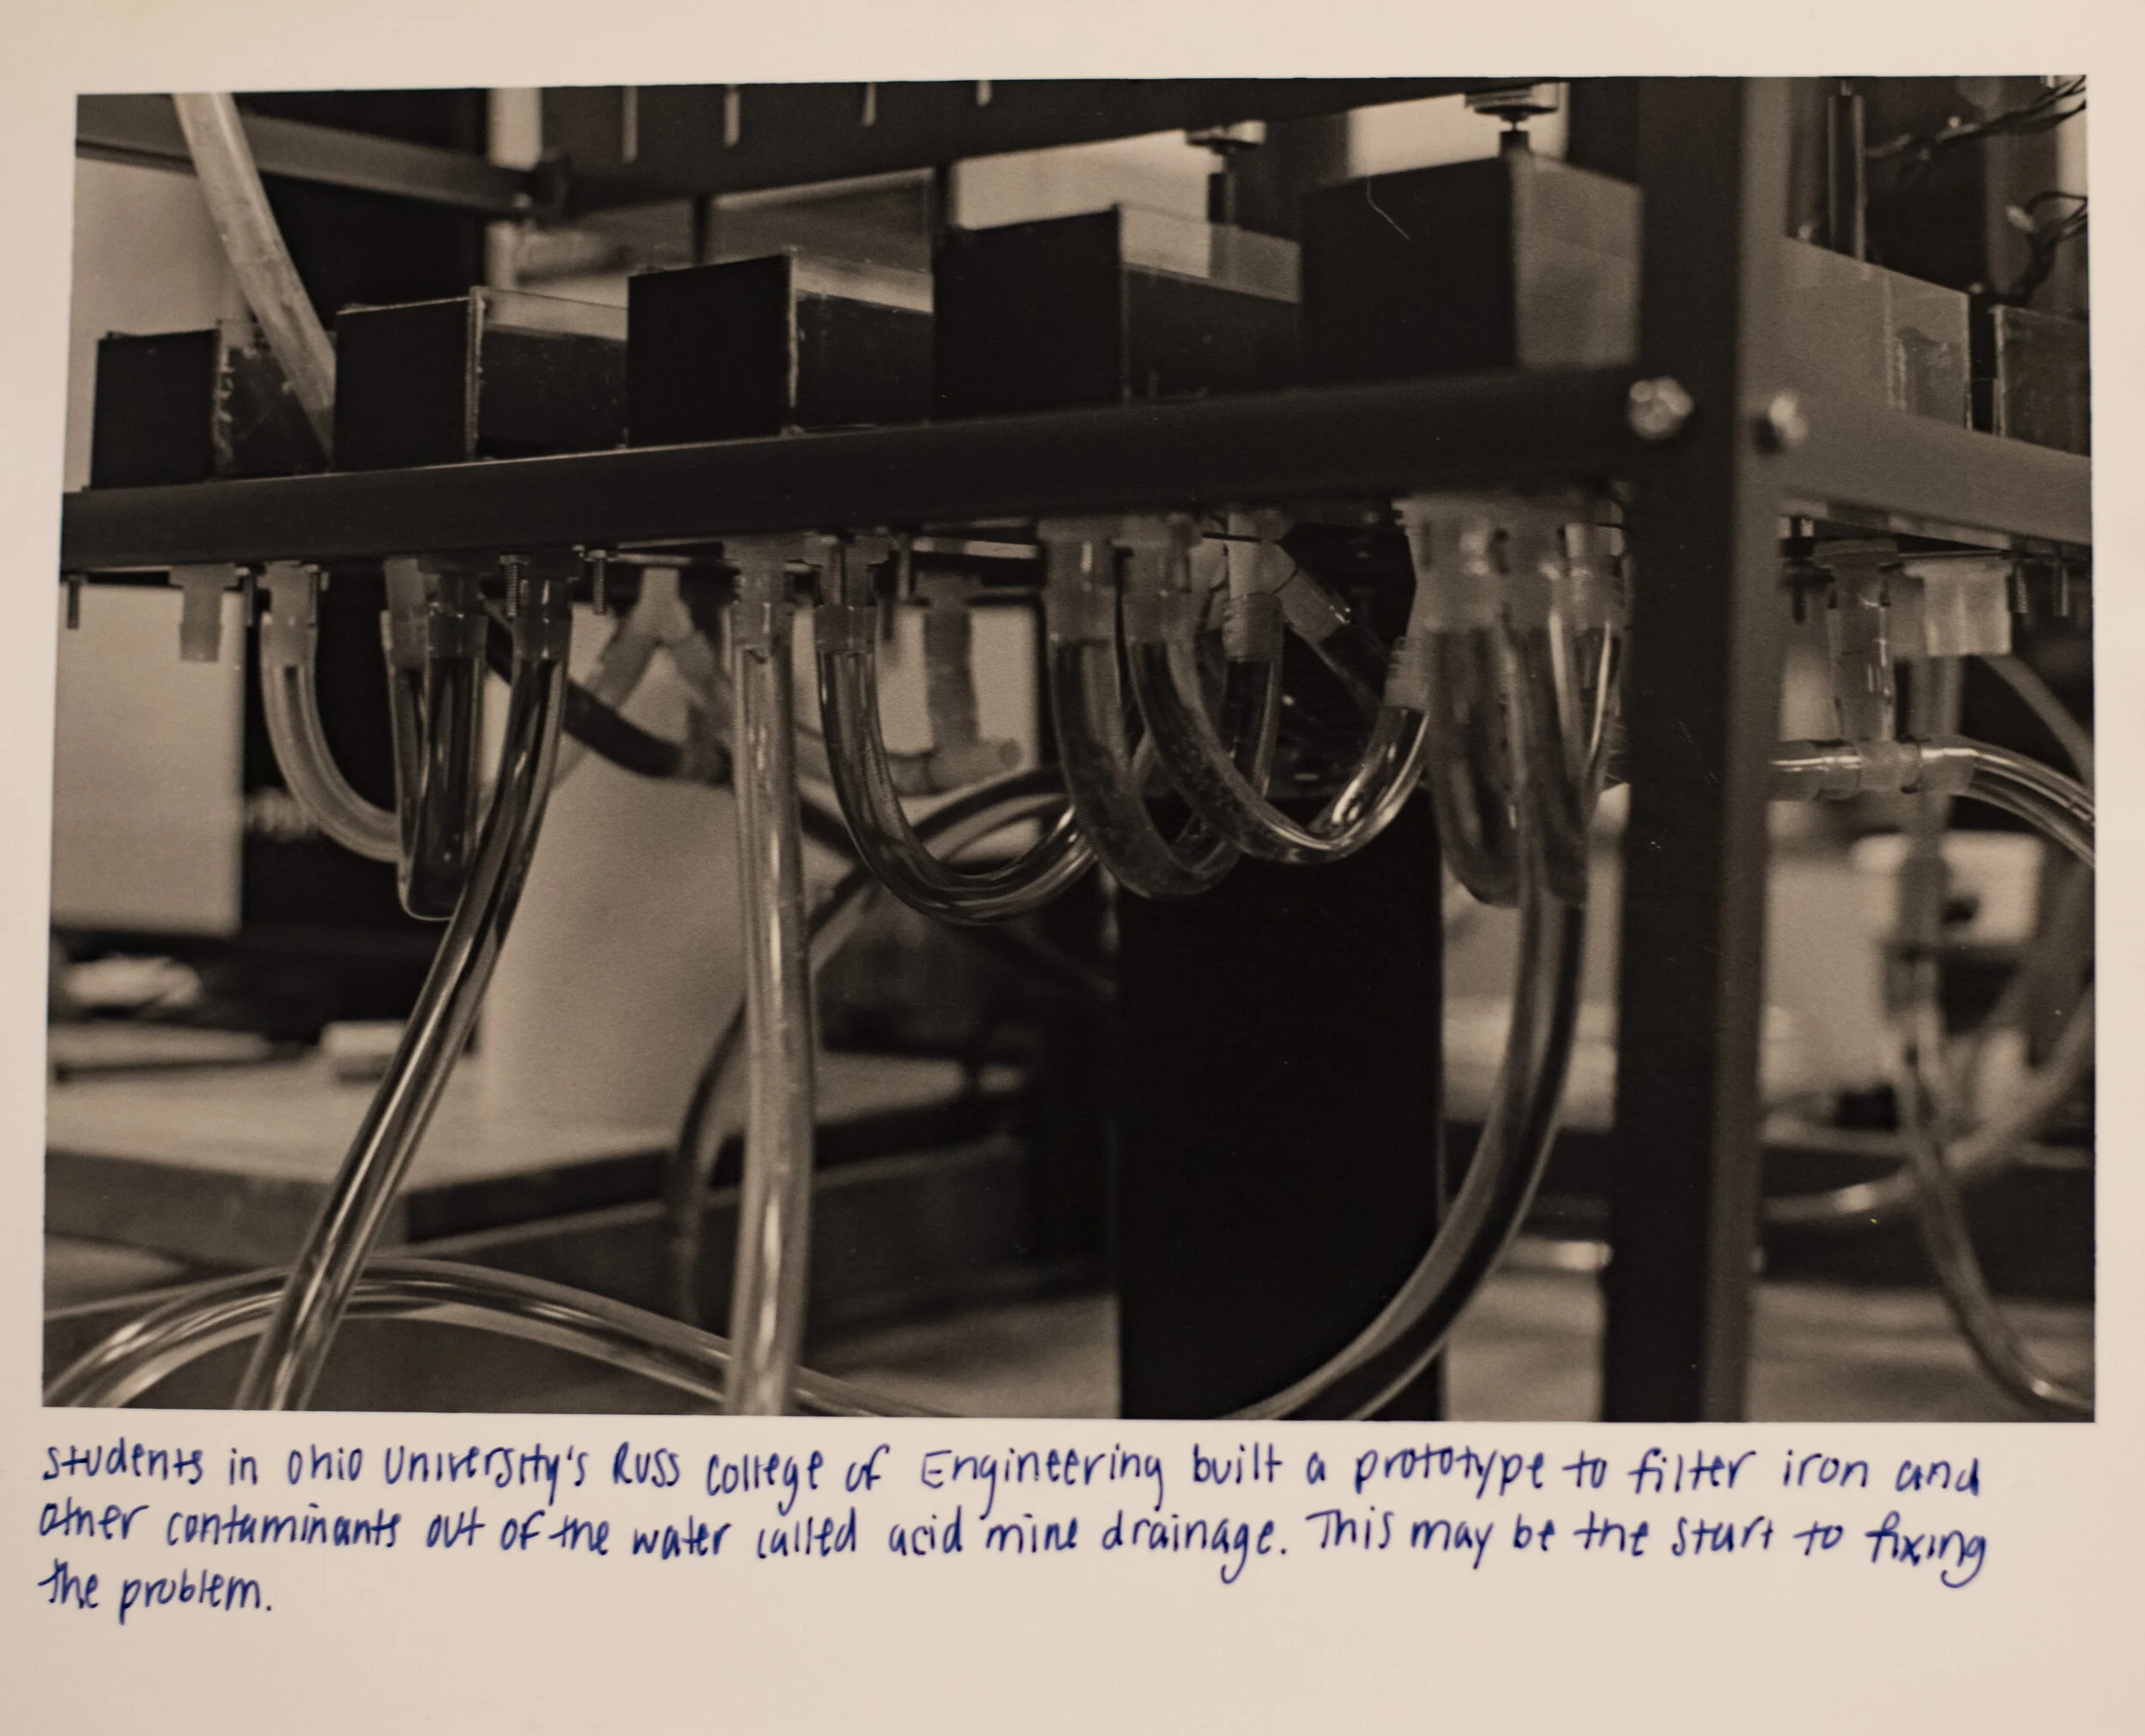 Students in Ohio University's Russ College of Engineering built a prototype to filter iron and
other contaminants out of the water called acid mine drainage. This may be the start to fixing
the problem.